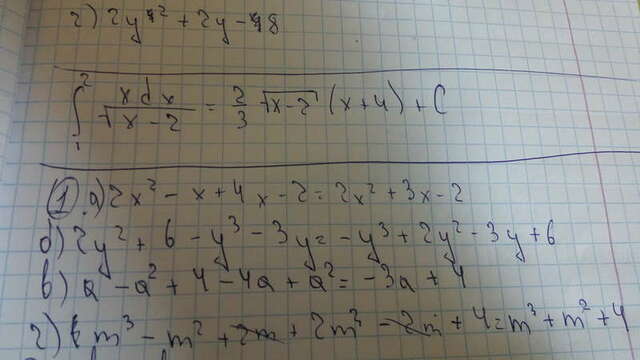 г) 2y² + 2y - 98
∫₁² xdx/√(x-2) = 2/3 √(x-2) (x+4) + C
① а) 2x² - x + 4x - 2 = 2x² + 3x - 2
б) 2y² + 6 - y³ - 3y = -y³ + 2y² - 3y + 6
в) a - a² + 4 - 4a + a² = -3a + 4
г) m³ - m² + 2m + 2m² - 2m + 4 = m³ + m² + 4